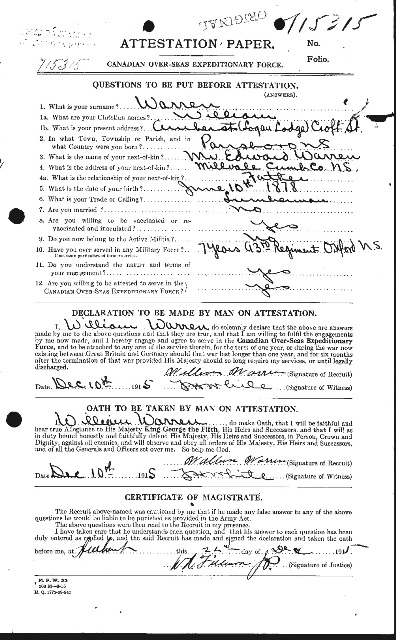 ORIGINAL
715315
715315
ATTESTATION PAPER.
No.
Folio.
CANADIAN OVER-SEAS EXPEDITIONARY FORCE.
QUESTIONS TO BE PUT BEFORE ATTESTATION.
(ANSWERS).
1. What is your surname? Warren
1a. What are your Christian names? William
1b. What is your present address? Amherst (Logan Lodge) Croft St.
2. In what Town, Township or Parish, and in what Country were you born? Parrsboro N.S
3. What is the name of your next-of-kin? Mr. Edward Warren
4. What is the address of your next-of-kin? Millvale Cumb. Co. N.S.
4a. What is the relationship of your next-of-kin? Father
5. What is the date of your birth? June 10th 1878
6. What is your Trade or Calling? Lumberman
7. Are you married? No
8. Are you willing to be vaccinated or re-vaccinated and inoculated? Yes
9. Do you now belong to the Active Militia?
10. Have you ever served in any Military Force? 7 years 93rd Regiment Oxford N.S.
11. Do you understand the nature and terms of your engagement? Yes
12. Are you willing to be attested to serve in the CANADIAN OVER-SEAS EXPEDITIONARY FORCE? Yes
DECLARATION TO BE MADE BY MAN ON ATTESTATION.
I, William Warren, do solemnly declare that the above are answers
made by me to the above questions and that they are true, and that I am willing to fulfil the engagements
by me now made, and I hereby engage and agree to serve in the Canadian Over-Seas Expeditionary
Force, and to be attached to any arm of the service therein, for the term of one year, or during the war now
existing between Great Britain and Germany should that war last longer than one year, and for six months
after the termination of that war provided His Majesty should so long require my services, or until legally
discharged.
William Warren (Signature of Recruit)
Date Dec 10th 1915 (Signature of Witness)
OATH TO BE TAKEN BY MAN ON ATTESTATION.
I, William Warren, do make Oath, that I will be faithful and
bear true Allegiance to His Majesty King George the Fifth, His Heirs and Successors, and that I will as
in duty bound honestly and faithfully defend His Majesty, His Heirs and Successors, in Person, Crown and
Dignity, against all enemies, and will observe and obey all orders of His Majesty, His Heirs and Successors,
and of all the Generals and Officers set over me. So help me God.
William Warren (Signature of Recruit)
Date Dec 10th 1915 (Signature of Witness)
CERTIFICATE OF MAGISTRATE.
The Recruit above-named was cautioned by me that if he made any false answer to any of the above
questions he would be liable to be punished as provided in the Army Act.
The above questions were then read to the Recruit in my presence.
I have taken care that he understands each question, and that his answer to each question has been
duly entered as replied to, and the said Recruit has made and signed the declaration and taken the oath
before me, at Amherst this day of Dec 1915
(Signature of Justice)
M. F. W. 23
H. Q. 1772-39-841